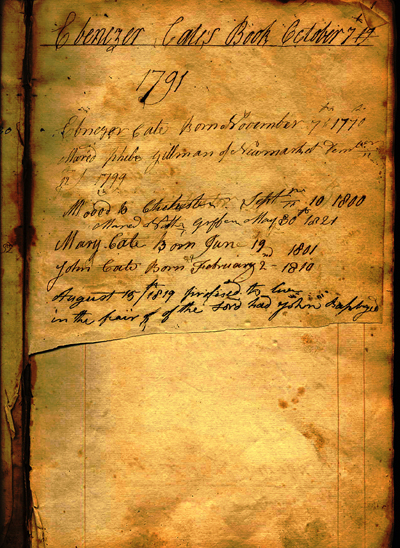 Ebenezer Cates Book October 7th
1791
Ebenezer Cate Born November 7th 1770
Mared phebe gillman of Newmarket
1799
Moved to Sept 10 1800
Mared May 30th 1821
Mary Cate Born Jan 19 1801
John Cate Born February 2d 1810
August 15th 1819 profesed to live
in the fair of of the Lord had John Baptized